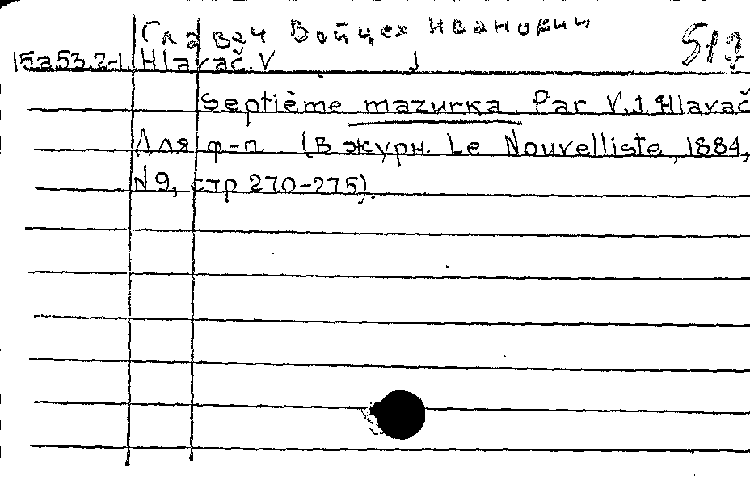 Главач Войцех Иванович
15а53.2-1 Hlavač. V
Septième mazurka Par V.I. Hlavač
Для ф-п. (В журн. Le Nouvelliste, 1884,
N9, стр 270-275).